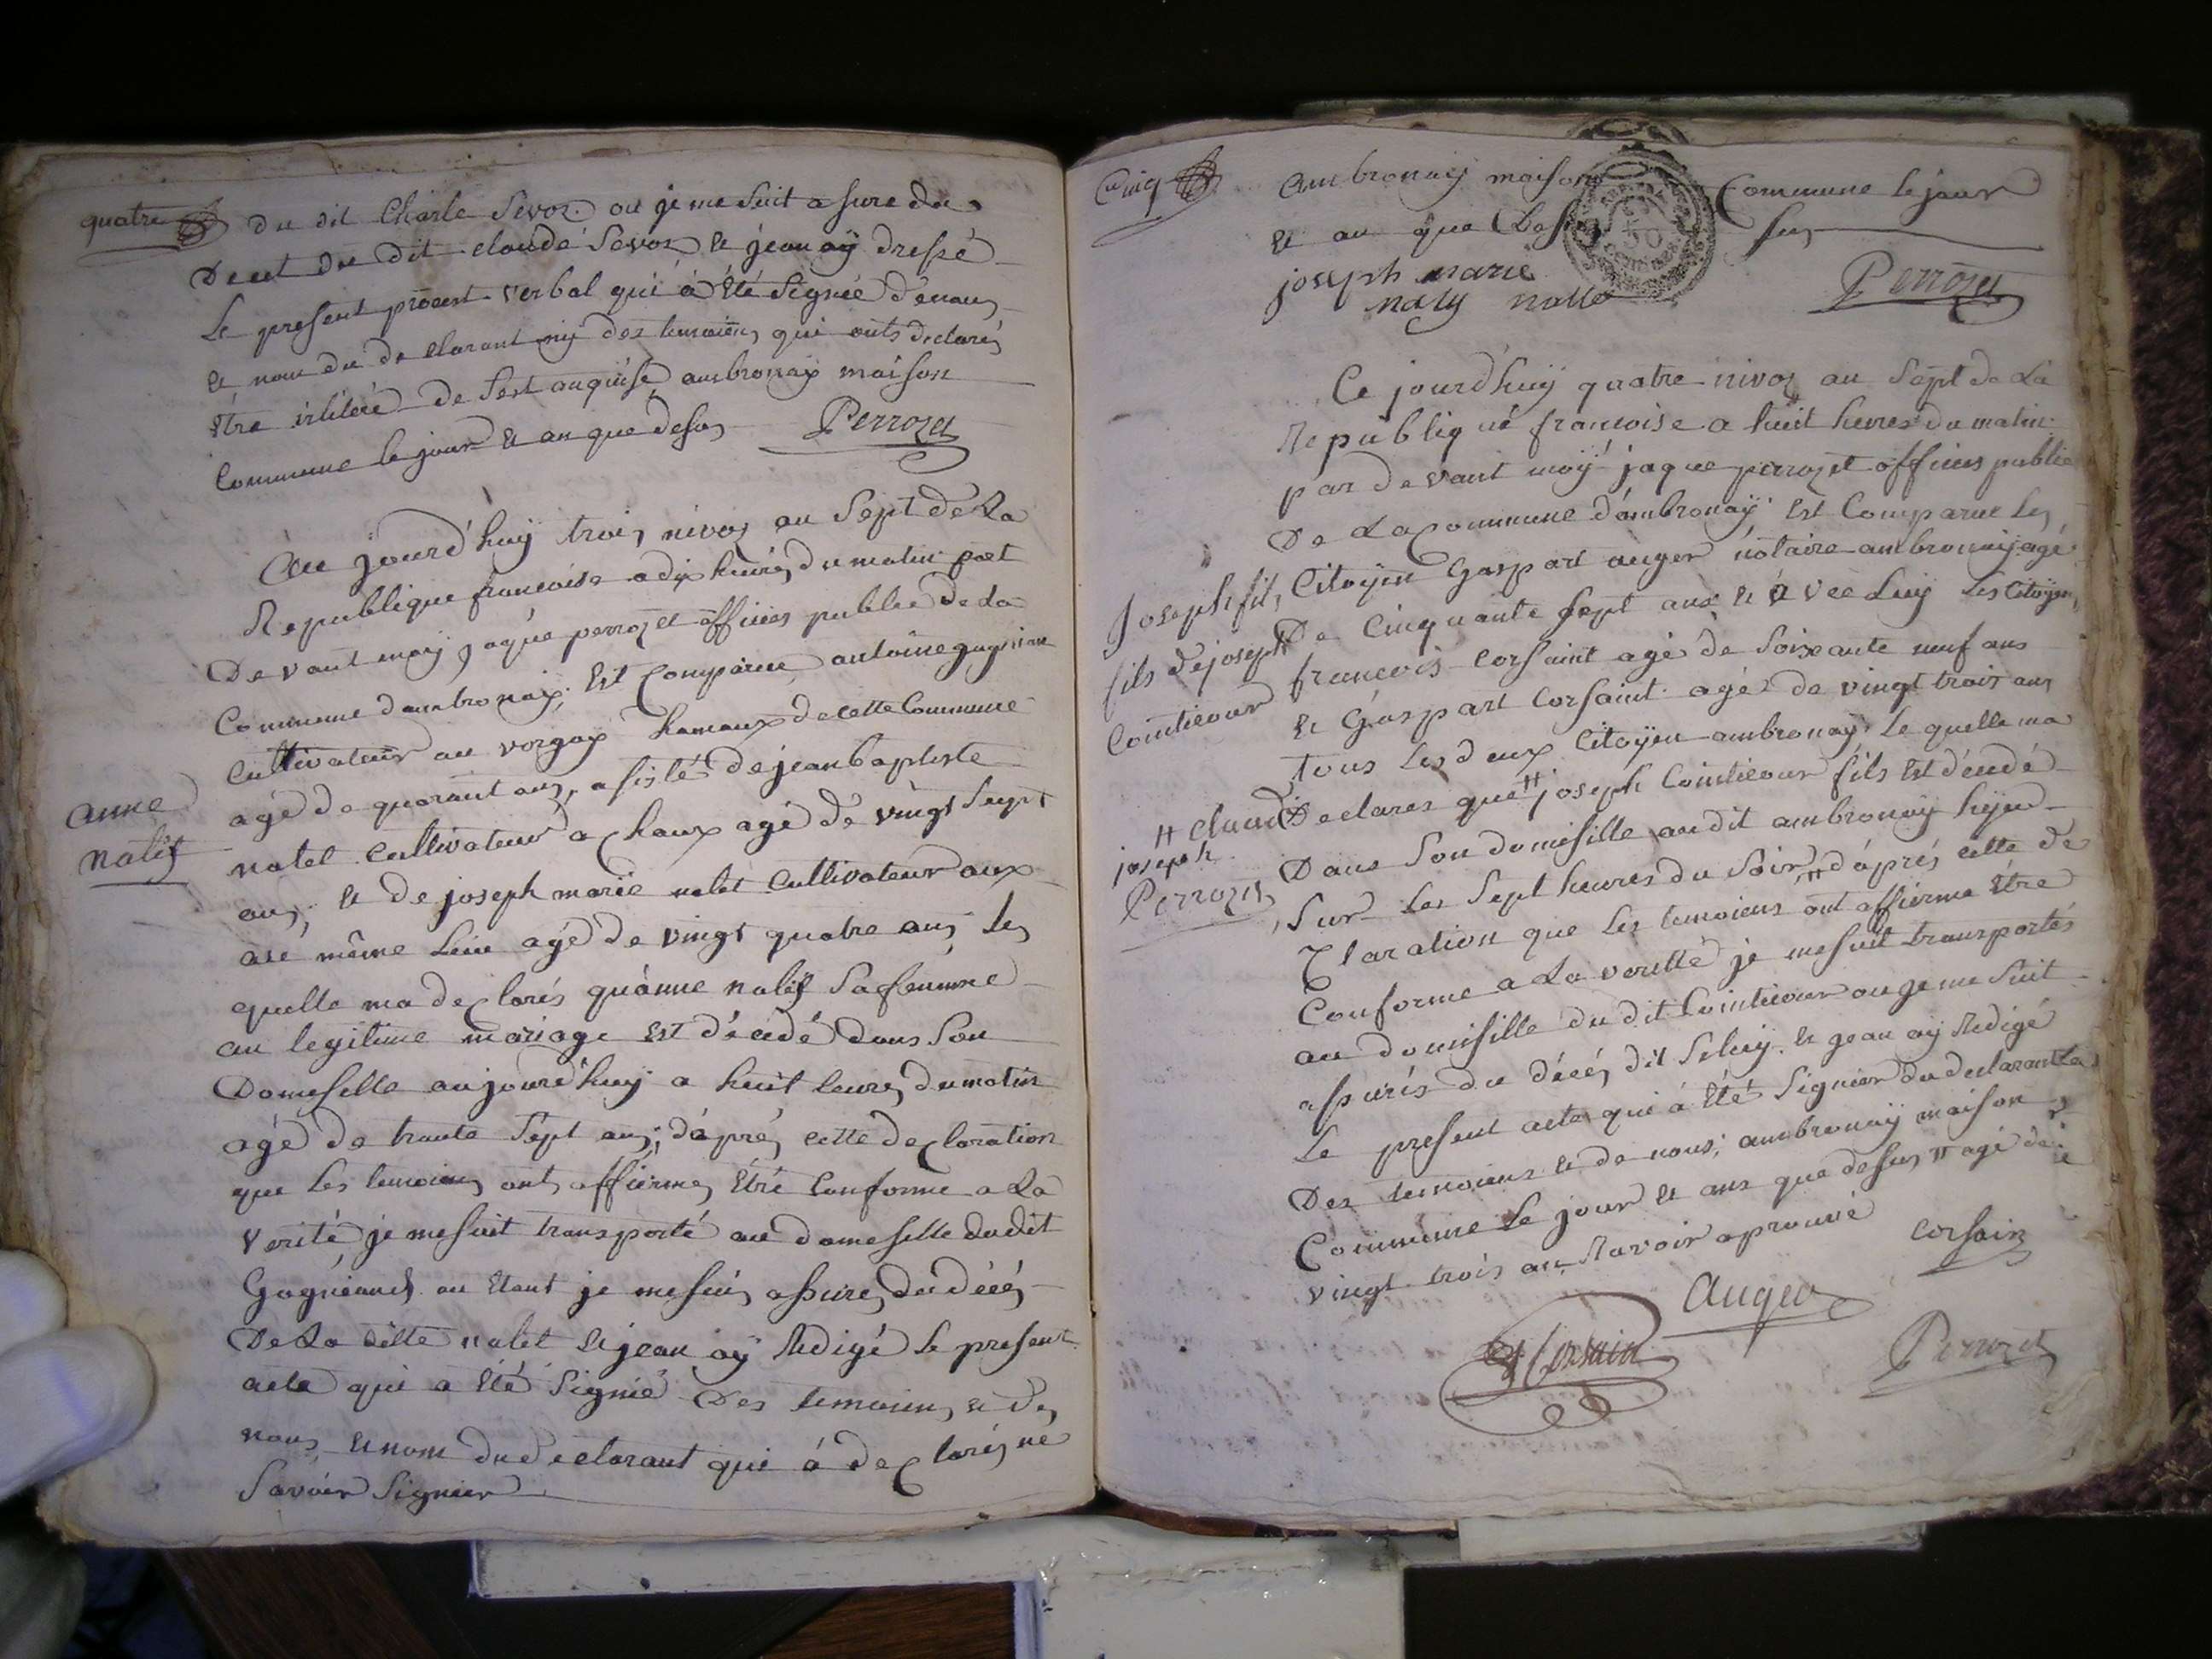 quatre
du dit Charle Sevoz ou je me Suit asure du
Decet du dit claude Sevoz et jeanaÿ dressé
Le present procest verbal qui à Eté Signié dénous
et nom du de clarant nÿ des temoiens qui onts declarés
Etre de Sest anquise ambronaÿ maison
Commune le jour et an que desus Perrozet
Au jourd'huÿ trois nivoz an Sept de La
Republique francoise a dix heures du matin part
Devant moÿ jaque perrozet officies publie de La
Commune d'ambronaÿ; Est Comparue antoine
Cultivateur au vorgaÿ hameaux de cette Commune
agé de quarant ans, asisté de jean baptiste
anne
nalet
natel Cultivateur a chaux agé de vingt Sept
ans; et de joseph marie nalet Cultivateur aux
asé même Leiu agé de vingt quatre ans Les
quelle ma de clarés quànne nalet Sa femme
au legitime mariage est décédé dans Son
Domeselle aujourd'huÿ a huit heures du matin
agé de trante Sept ans; dáprés cette de claration
que Les temoiens onts affierme, Etre Conforme a La
verité je mesuit transporté au domeselle dudit
Gagnéand ou Etant je mesuis assures du décés
De La ditte nalet et jean aÿ Redigé Le present
acte qui a Eté Signié Des temoiens et de
nous et nom du declarant qui à de clarés ne
Savoir Signier
Cinq
Ambronaÿ maison Commune le jour
et an que Desus
joseph marie
naly Perrozet
Ce jourd'huÿ quatre nivoz an Sept de La
Republiqué francoise a huit heures du matin
par devant moÿ jaque perrozet officies publie
De La Commune d'ambronaÿ Est Comparue Les
Citoÿen Gaspart auger notaire ambronaÿ agé
De Cinquante Sept ans et avec Luÿ Les Citoÿen
Joseph fils
fils de joseph
Cointicour
francois Corsaint agé de Soixante neuf ans
et Gaspart Corsaint agé de vingt trois ans
tous Les deux Citoÿen ambronaÿ Le quelle ma
Declares que # joseph Cointicour fils Est décédé
# claude
joseph
Perrozet
Dans Son domisille audit ambronaÿ hÿer
Sur Les Sept heures du Soir # dáprés cette de
Claration que Les temoiens ont affierme Etre
Conforme a La veritté je mesuit transportés
au domisille du dit Cointicour ou je me Suit
assurés du décés dit Seluÿ et jean aÿ Redigé
Le present acte qui à Eté Signier du declarant
Des temoiens et de nous; ambronaÿ maison
Commune Le jour et ans que desus # agé de
vingt trois an aprouvé
Corsain
Auger
Corsain
Perrozet